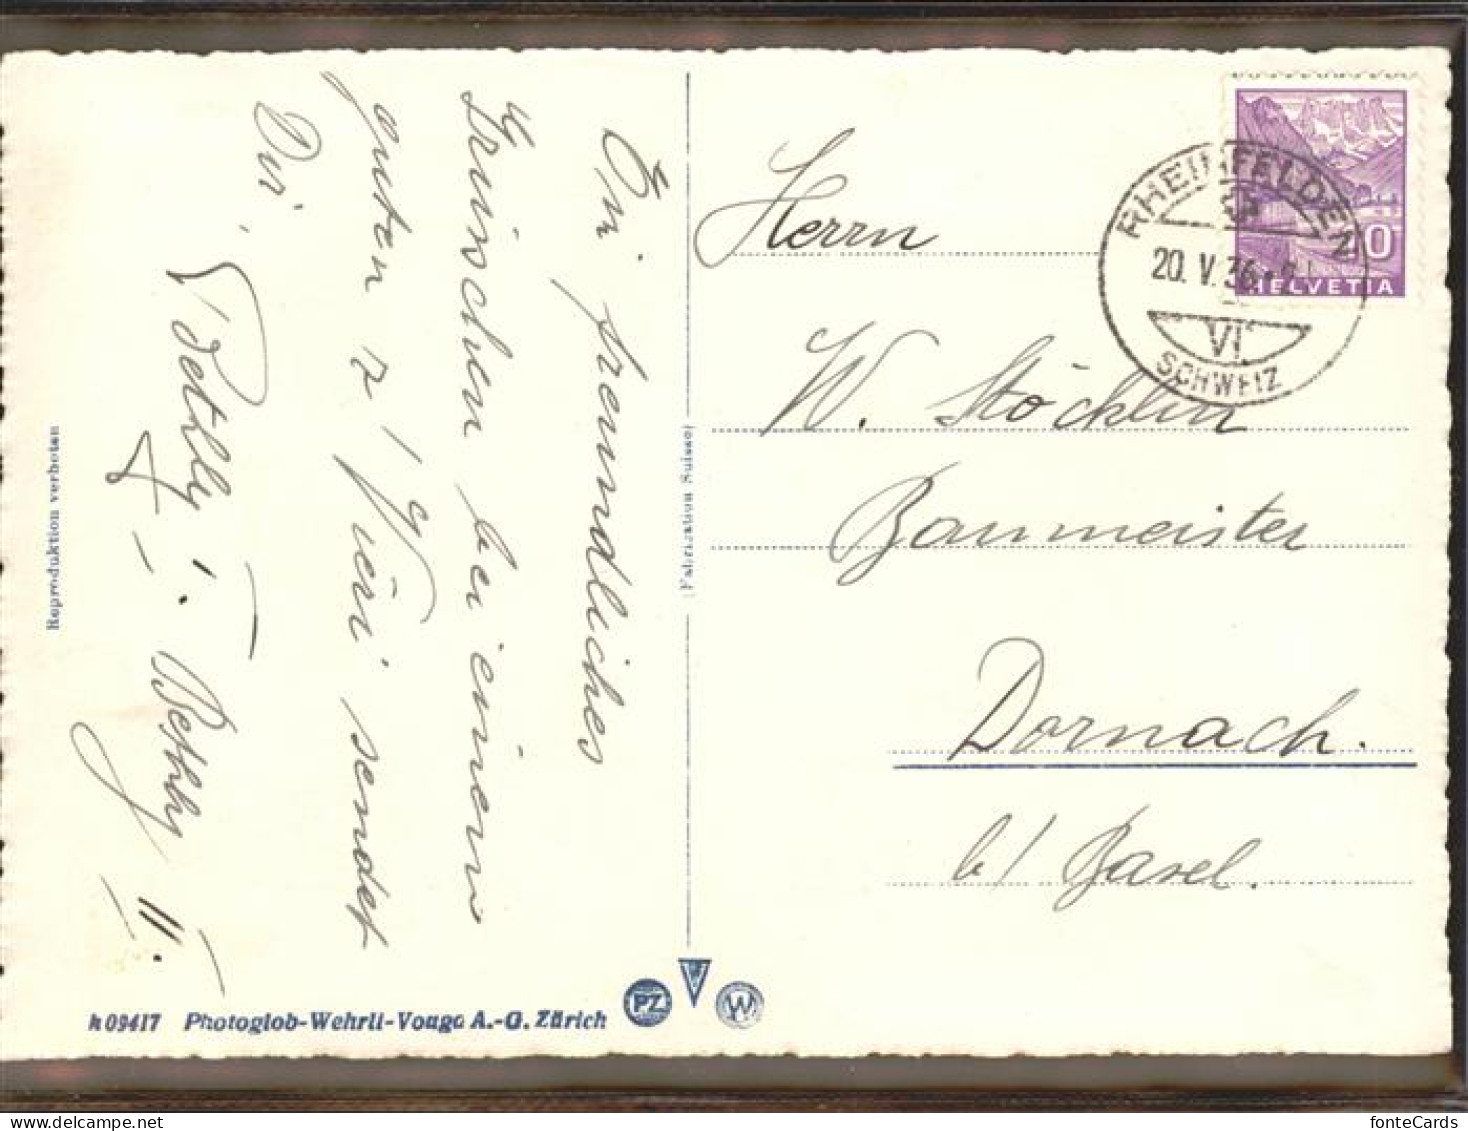 Ein freundliches
Grüsschen bei einem
guten z' Vieri sendet
Dir,
Bethly I.
+ Bethly II.
Reproduktion verboten
(Fabrication Suisse)
Herrn
W. Stöcklin
Baumeister
Dornach.
b/ Basel.
RHEINFELDEN
20. V. 36.
VI
SCHWEIZ
10
HELVETIA
K 09417 Photoglob-Wehrli-Vouga A.-G. Zürich
PZ
V
W
fonteCards